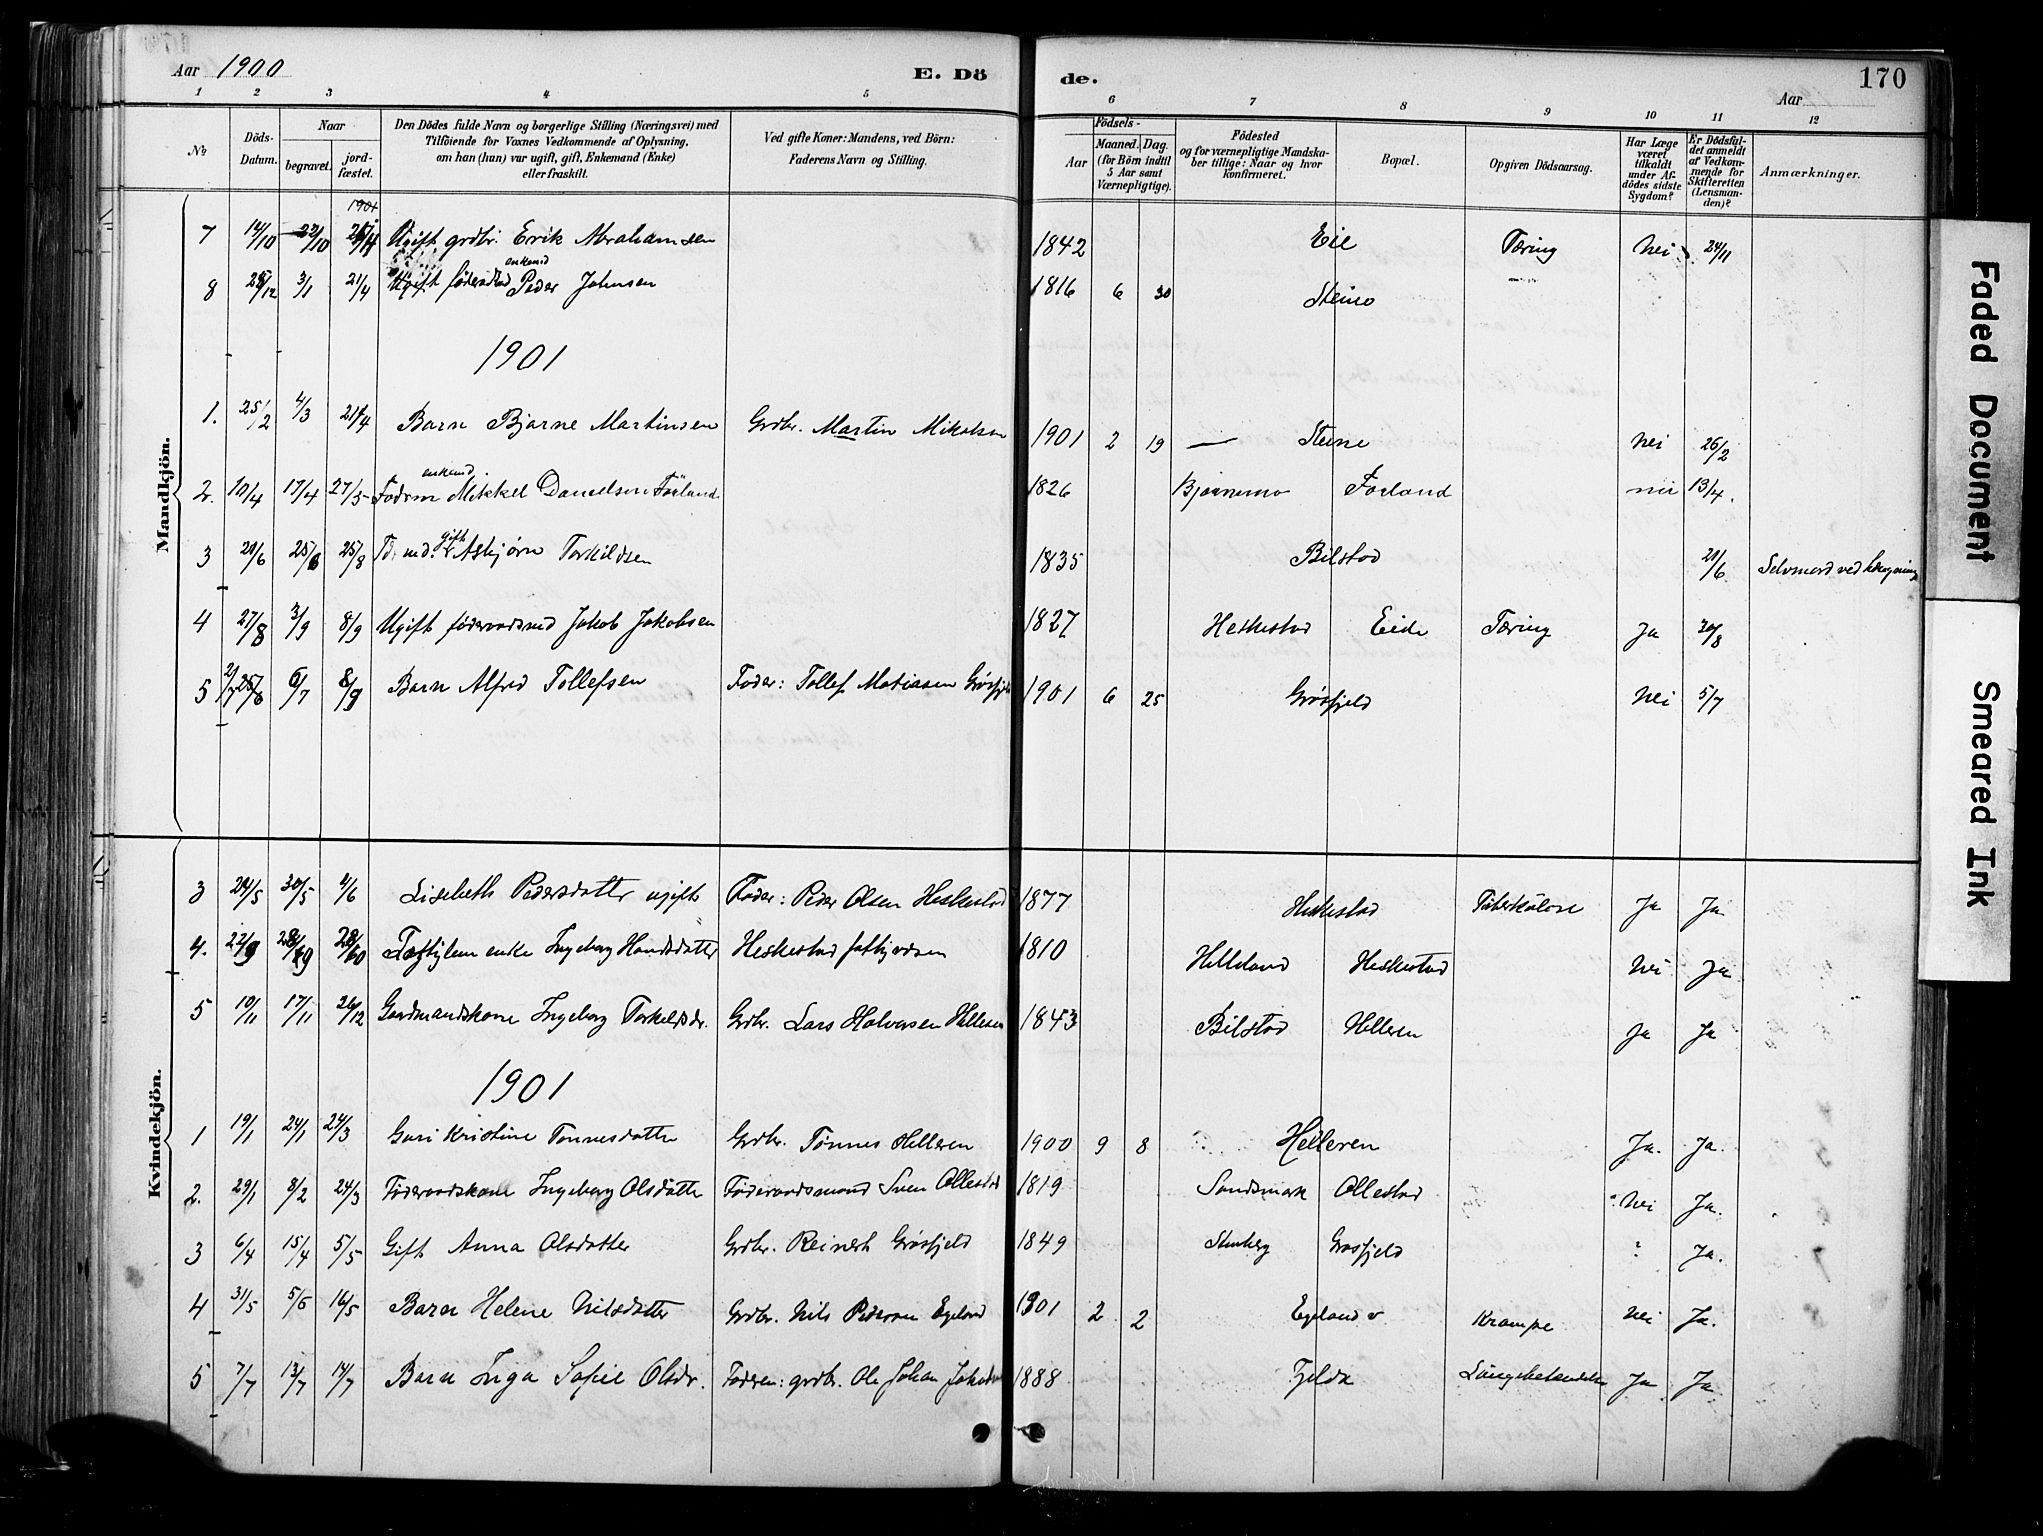 Aar 1900
E. Dö
de.
Aar
170
1 2 3 4 5 6 7 8 9 10 11 12
№
Döds-Datum.
Naar
begravet.
jord-fæstet.
Den Dödes fulde Navn og borgerlige Stilling (Næringsvei) med
Tilföiende for Voxnes Vedkommende af Oplysning,
om han (hun) var ugift, gift, Enkemand (Enke)
eller fraskilt.
Ved gifte Koner: Mandens, ved Börn:
Faderens Navn og Stilling.
Födsels-
Aar
Maaned. Dag.
(for Börn indtil
5 Aar samt
Værnepligtige).
Födested
og for værnepligtige Mandska-
ber tillige: Naar og hvor
konfirmeret.
Bopæl.
Opgiven Dödsaarsag.
Har Læge
været
tilkaldt
under Af-
dödes sidste
Sygdom?
Er Dödsfal-
det anmeldt
af Vedkom-
mende for
Skifteretten
(Lensman-
den)?
Anmærkninger.
Mandkjön.
1901
7 14/10 22/10 Ugift grdbr. Erik Abrahamsen 1842 Eie Tæring Nei 24/11
enkemd
8 28/12 3/1 21/4 Ugift føderaad Peder Johnsen 1816 6 30 Steino
1901
1. 25/2 4/3 21/4 Barn Bjarne Martinsen Grdbr. Martin Mikalsen 1901 2 19 — Steine Nei 26/2
enkemd
2. 10/4 17/4 27/5 Føderm Mikkel Danielsen Förland 1826 Bjørnemo Forland nei 13/4.
gift
3 20/6 25/6 25/8 Fd. md. Asbjørn Torkildsen 1835 Bilstad 21/6 Selvmord ved hængning
4 27/8 3/9 8/9 Ugift føderaadsmd Jakob Jakobsen 1827 Heskestad Eide Tæring Ja 30/8
5 2/7 25/6 6/7 8/9 Barn Alfred Tollefsen Fader: Tollef Matiasen Grøsfjeld 1901 6 25 Grøsfjeld Nei 5/7
Kvindekjön.
3 24/5 30/5 4/6 Lisebeth Pedersdatter ugift Fader: Peder Olsen Heskestad 1877 Heskestad Tuberkulose Ja Ja
4. 22/9 28/9 28/10 enke Ingeborg Hansdatter Heskestad 1810 Helleland Heskestad Nei Ja
5 10/11 17/11 26/12 Gardmandskone Ingeborg Torkelsdr. Grdbr. Lars Halvorsen Helleren 1843 Bilstad Helleren Ja Ja
1901
1 19/1 24/1 24/3 Guri Kristine Tønnesdatter Grdbr. Tønnes Helleren 1900 9 8 Helleren Ja. Ja.
2. 29/1 8/2 24/3 Føderaadskone Ingeborg Olsdatter Føderaadsmand Sven Ollestad 1819 Sandsmark Ollestad Nei Ja.
3 6/4 15/4 5/5 Gift Anna Olsdatter Grdbr. Reinert Grøsfjeld 1849 Stenberg Grøsfjeld ? Ja.
4 31/5 5/6 16/5 Barn Helene Nilsdatter Grdbr. Nils Pedersen Egeland 1901 2 2 Egeland v Krampe Nei Ja.
5 7/7 13/7 14/7 Barn Inga Sofie Olsdr. Faderen: grdbr. Ole Johan Jakobsen 1888 Ejelde Lungebetændelse Ja Ja
Faded Document
Smeared Ink